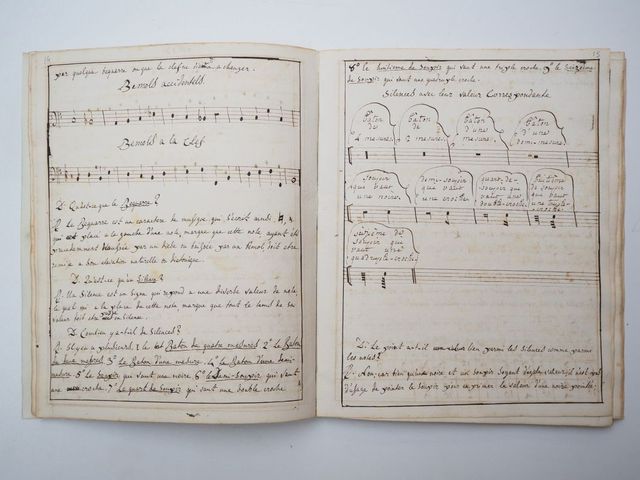 par quelque bequarre ou que la clef ne a changer.
Bemols accidentels
Bemols a la Clef.
D. Qu'est-ce que le Bequarre?
R. Le Bequarre est un caractere de musique qui s'ecrit ainsi
qui est placé a la gauche d'une note, marque que cette note, ayant été
precedemment haussée par un dieze ou baissée par un bémol doit etre
remise a son elevation naturelle
D. Qu'est-ce qu'un Silence?
R. Un Silence est un signe qui repond a une diverse valeur de note,
le quel mis a la place de cette note, marque que tout le tems de sa
valeur doit etre en silence.
D. Combien y a-t-il de Silences?
R. Il y en a plusieurs, 1. le Baton de quatre mesures 2. Le Baton
de deux mesures. 3. Le Baton d'une mesure. 4. le Baton d'une demi-
mesure. 5. le Soupir qui vaut une noire. 6. le Demi-Soupir qui vaut
une croche. 7. Le quart de Soupir qui vaut une double croche
15
8. le huitieme de Soupir qui vaut une triple croche. 9. le Seizieme
de Soupir qui vaut une quadruple croche.
Silences avec leur valeur Correspondante
bâton de 4 mesures
bâton de 2 mesures
bâton d'une mesure
bâton d'une demi-mesure
Soupir que vaut une noire
demi-soupir que vaut une croche
quart-de-soupir que vaut une double-croche
de Soupir que vaut une triple-croche
de soupir que vaut une quadruple-croche
D. Le point a-t-il lieu parmi les Silences comme parmi
les notes?
R. Non, car bien qu'une noire et un soupir soyent d'egale valeur, il n'est pas
d'usage de pointer le Soupir pour exprimer la valeur d'une noire pointée.